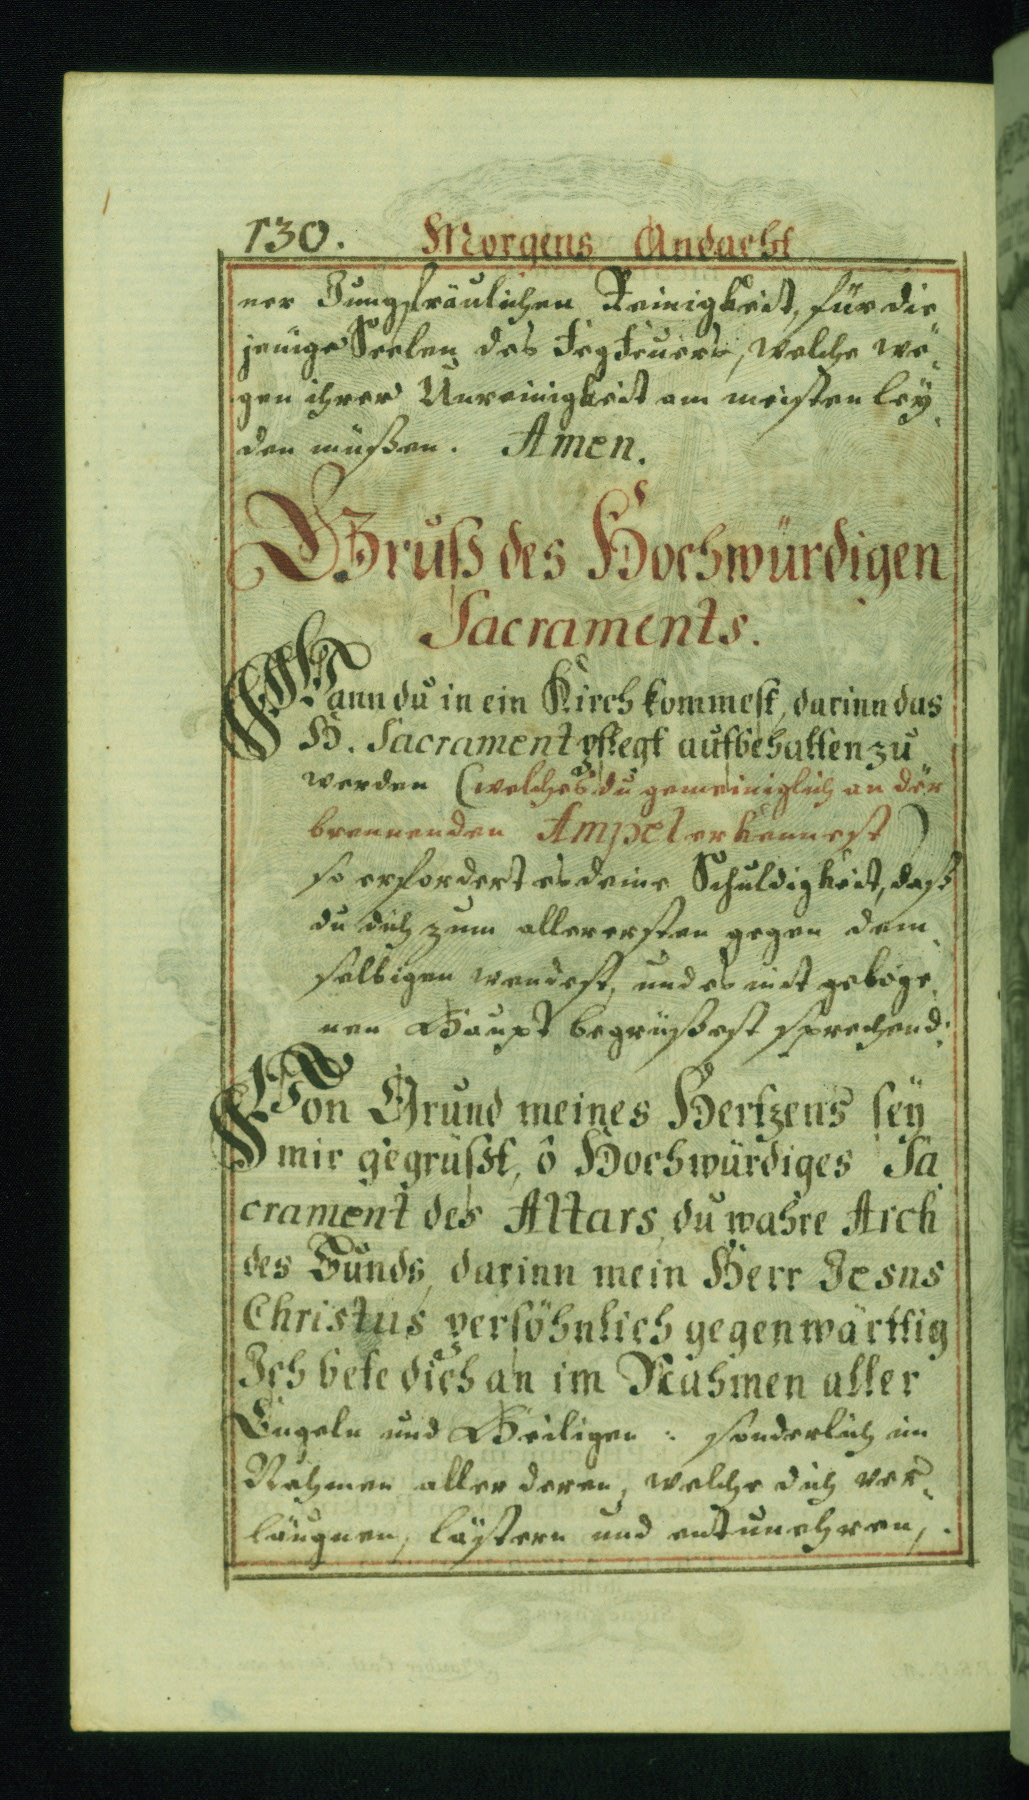 130. Morgens Andacht
ner Jungfräulichen Reinigkeit, für die
jenige Seelen des Fegfeuers, welche we„
gen ihrer Unreinigkeit am meisten ley„
den müßen. Amen.
Gruß des Hochwürdigen
Sacraments.
Wann du in ein Kirch kommest, darinn das
H. Sacrament pflegt aufbehalten zu
werden (welches du gemeiniglich an der
brennenden Ampel erkennest)
so erfordert es deine Schuldigkeit, daß
du dich zum allerersten gegen dem„
selbigen wendest, und es mit geboge„
nen Haupt begrüßest sprechend:
Von Grund meines Hertzens sey
mir gegrüßt, ô Hochwürdiges Sa„
crament des Altars, du wahre Arch
des Bunds, darinn mein Herr Jesus
Christus persöhnlich gegenwärttig
Ich bete dich an im Nahmen aller
Engeln und Heiligen: sonderlich im
Nahmen aller deren, welche dich ver„
läugnen, lästern und entunehren,